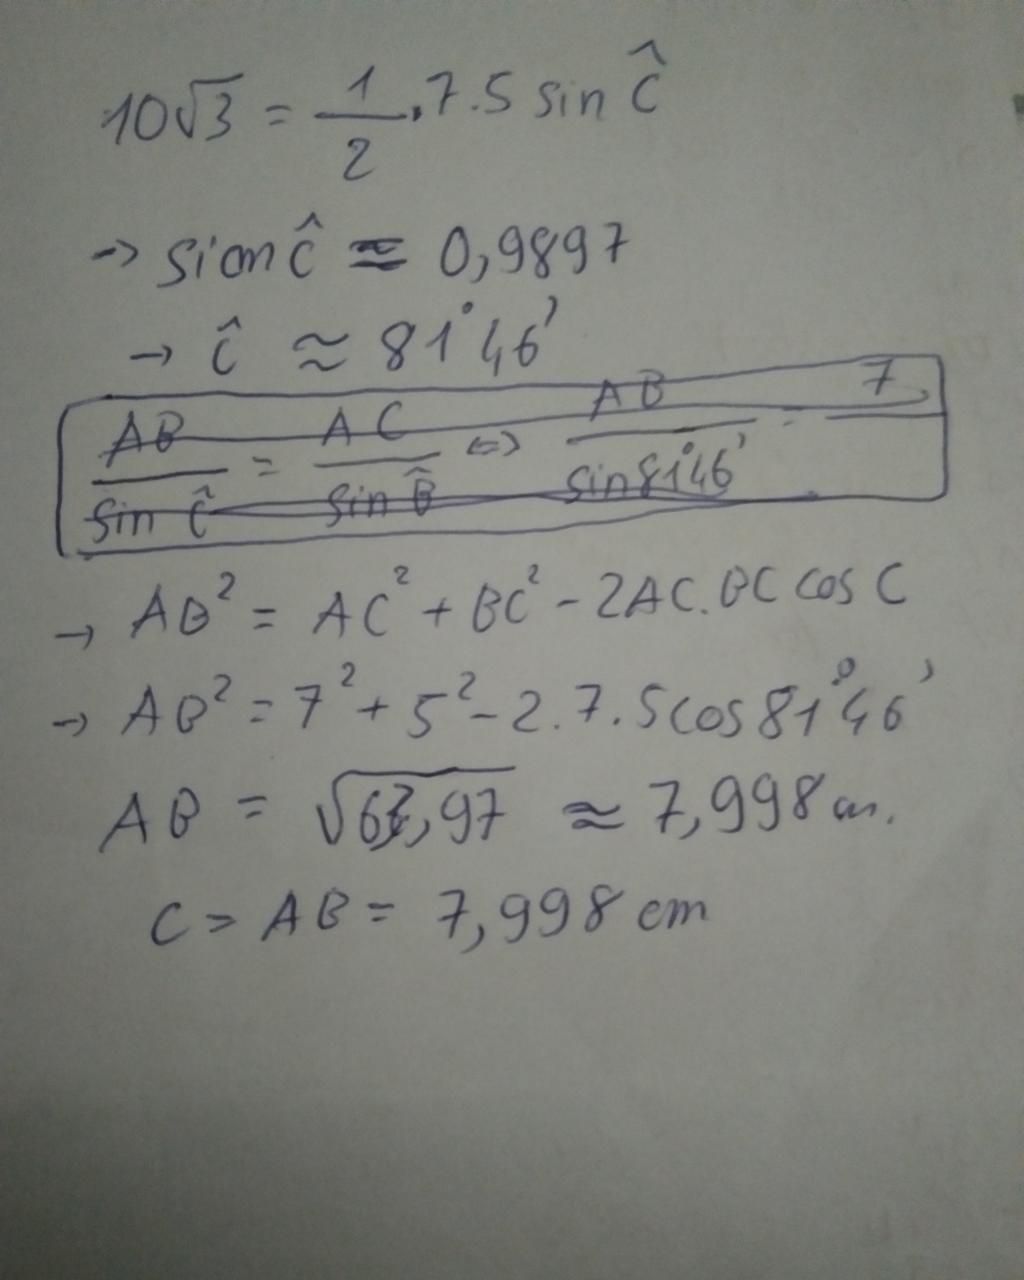 10√3 = 1/2 . 7.5 sin Ĉ
→ sin Ĉ ≈ 0,9897
→ Ĉ ≈ 81°46'
AB/sin Ĉ = AC/sin B̂ ⇔ AB/sin81°46' = 7/
→ AB² = AC² + BC² - 2AC.BC cos C
→ AB² = 7² + 5² - 2.7.5cos81°46'
AB = √63,97 ≈ 7,998 cm.
C = AB = 7,998 cm